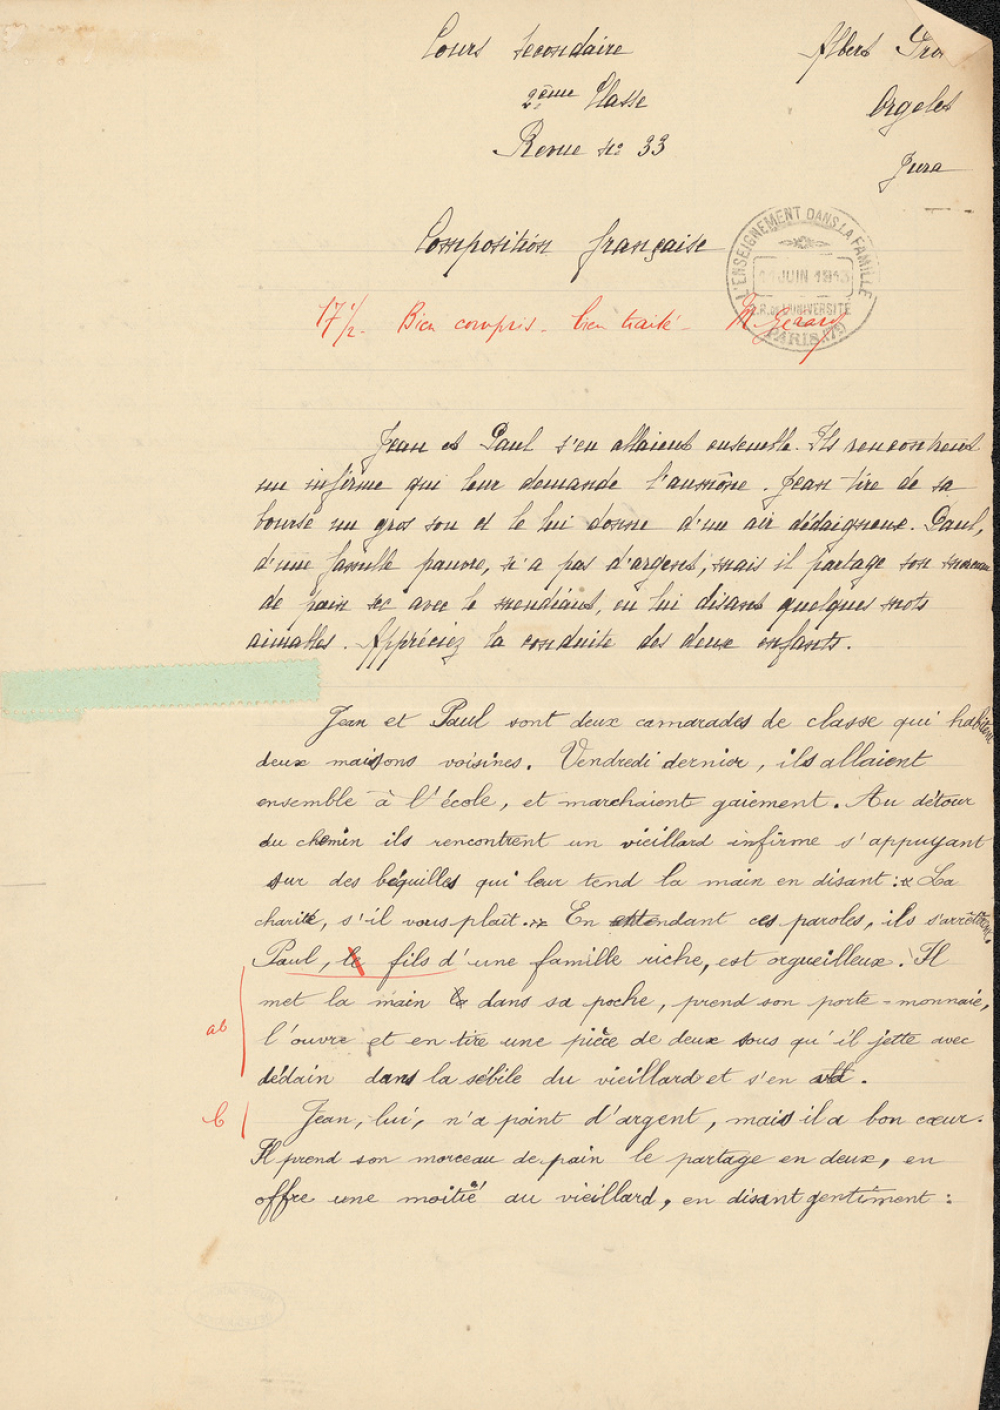 Cours secondaire
2ème Classe
Revue No 33
Albert
Orgelet
Jura
Composition française
L'ENSEIGNEMENT DANS LA FAMILLE
JUIN 1913
PARIS
17 1/2. Bien compris. bien traité. M. Gérard
Jean et Paul s'en allaient ensemble. Ils rencontrent
un infirme qui leur demande l'aumône. Jean tire de sa
bourse un gros sou et le lui donne d'un air dédaigneux. Paul,
d'une famille pauvre, n'a pas d'argent, mais il partage son morceau
de pain sec avec le mendiant, en lui disant quelques mots
aimables. Appréciez la conduite des deux enfants.
Jean et Paul sont deux camarades de classe qui habitent
deux maisons voisines. Vendredi dernier, ils allaient
ensemble à l'école, et marchaient gaiement. Au détour
du chemin ils rencontrent un vieillard infirme s'appuyant
sur des béquilles qui leur tend la main en disant : « La
charité, s'il vous plaît. » En entendant ces paroles, ils s'arrêtent.
Paul, le fils d'une famille riche, est orgueilleux. Il
met la main dans sa poche, prend son porte-monnaie,
ab
l'ouvre et en tire une pièce de deux sous qu'il jette avec
dédain dans la sébile du vieillard et s'en va.
b
Jean, lui, n'a point d'argent, mais il a bon cœur.
Il prend son morceau de pain le partage en deux, en
offre une moitié au vieillard, en disant gentiment :